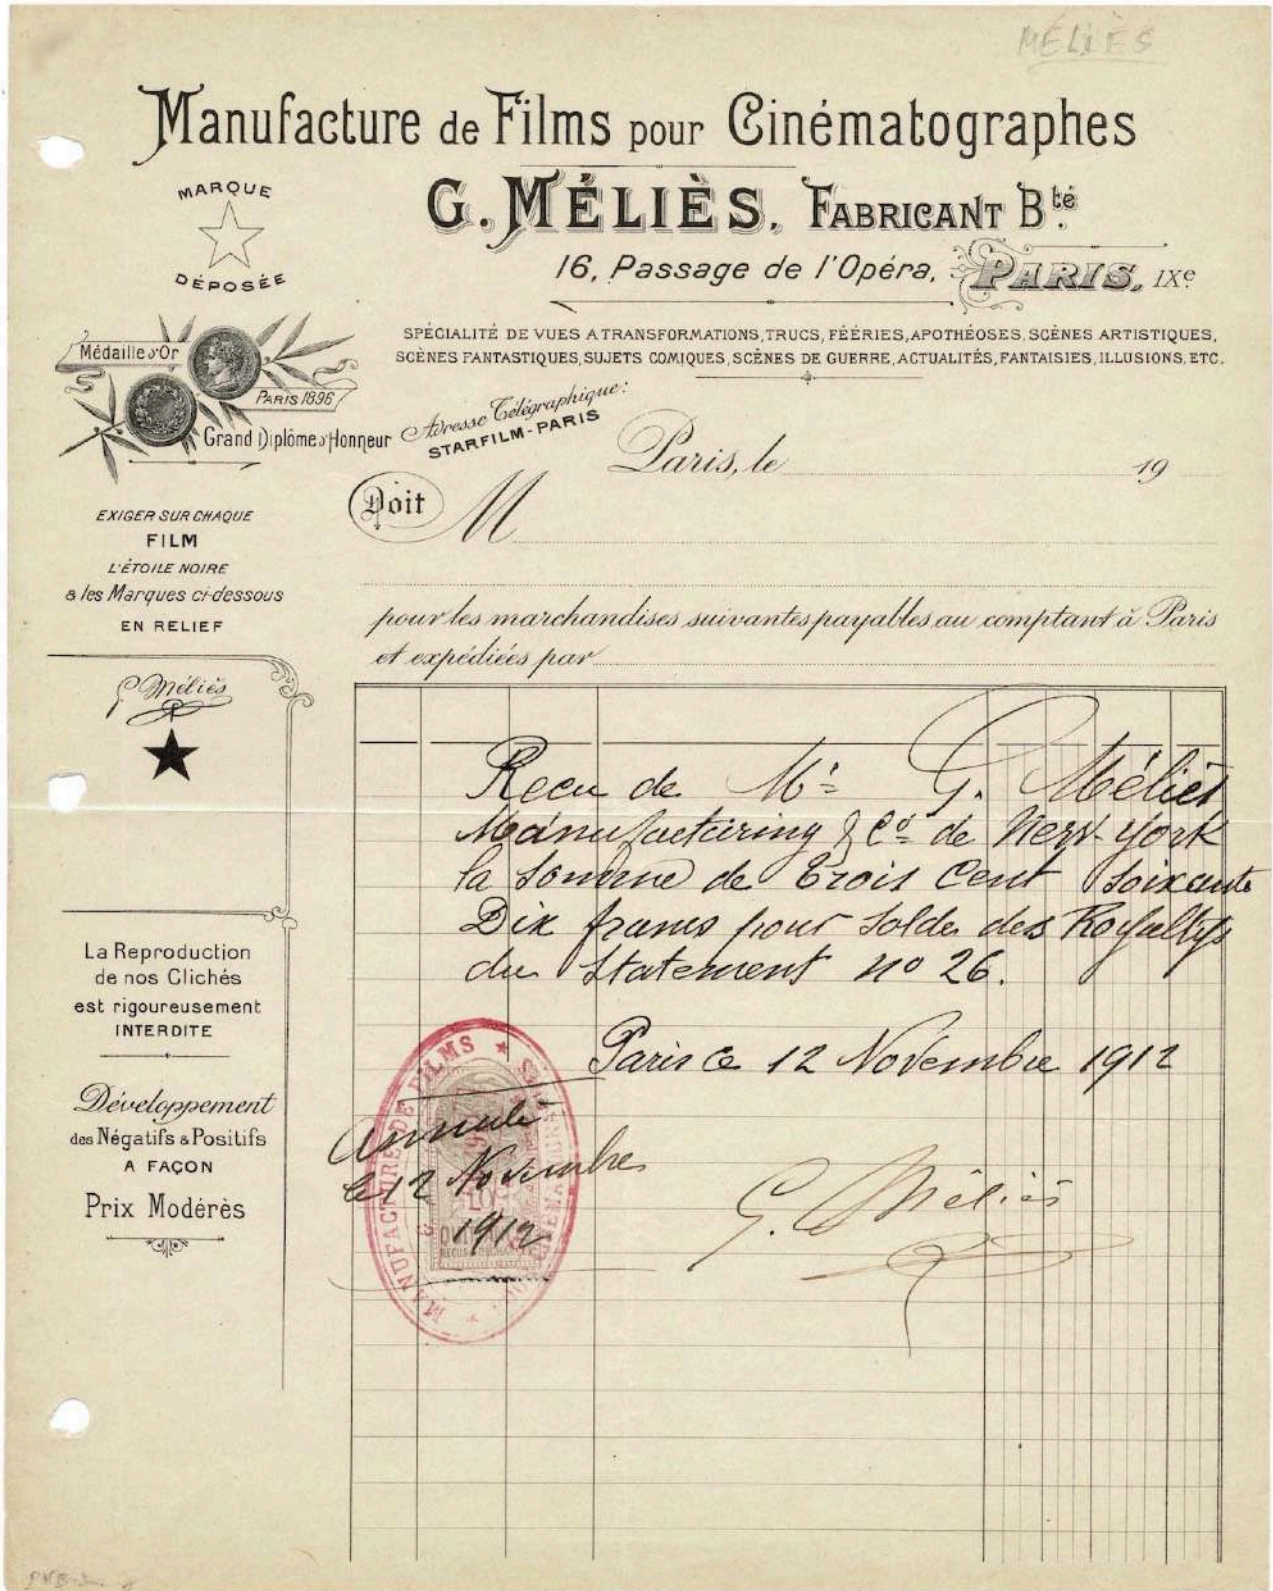 MÉLIÈS
Manufacture de Films pour Cinématographes
MARQUE
DÉPOSÉE
G. MÉLIÈS, FABRICANT Bté
16, Passage de l'Opéra, PARIS, IXe
SPÉCIALITÉ DE VUES A TRANSFORMATIONS, TRUCS, FÉÉRIES, APOTHÉOSES, SCÈNES ARTISTIQUES,
SCÈNES FANTASTIQUES, SUJETS COMIQUES, SCÈNES DE GUERRE, ACTUALITÉS, FANTAISIES, ILLUSIONS, ETC.
Médaille d'Or
PARIS 1896
Grand Diplôme d'Honneur
Adresse Télégraphique:
STARFILM-PARIS
Paris, le 19
Doit M
pour les marchandises suivantes payables au comptant à Paris
et expédiées par
EXIGER SUR CHAQUE
FILM
L'ÉTOILE NOIRE
& les Marques ci-dessous
EN RELIEF
G. Méliès
La Reproduction
de nos Clichés
est rigoureusement
INTERDITE
Développement
des Négatifs & Positifs
A FAÇON
Prix Modérès
Recu de Mr G. Méliès
Manufacturing & Co de New-York
la Somme de Trois Cent Soixante
Dix francs pour Solde des Royaltys
du Statement no 26.
Paris ce 12 Novembre 1912
MANUFACTURE DE FILMS
Annulé
le 12 Novembre
1912
10
G. Méliès